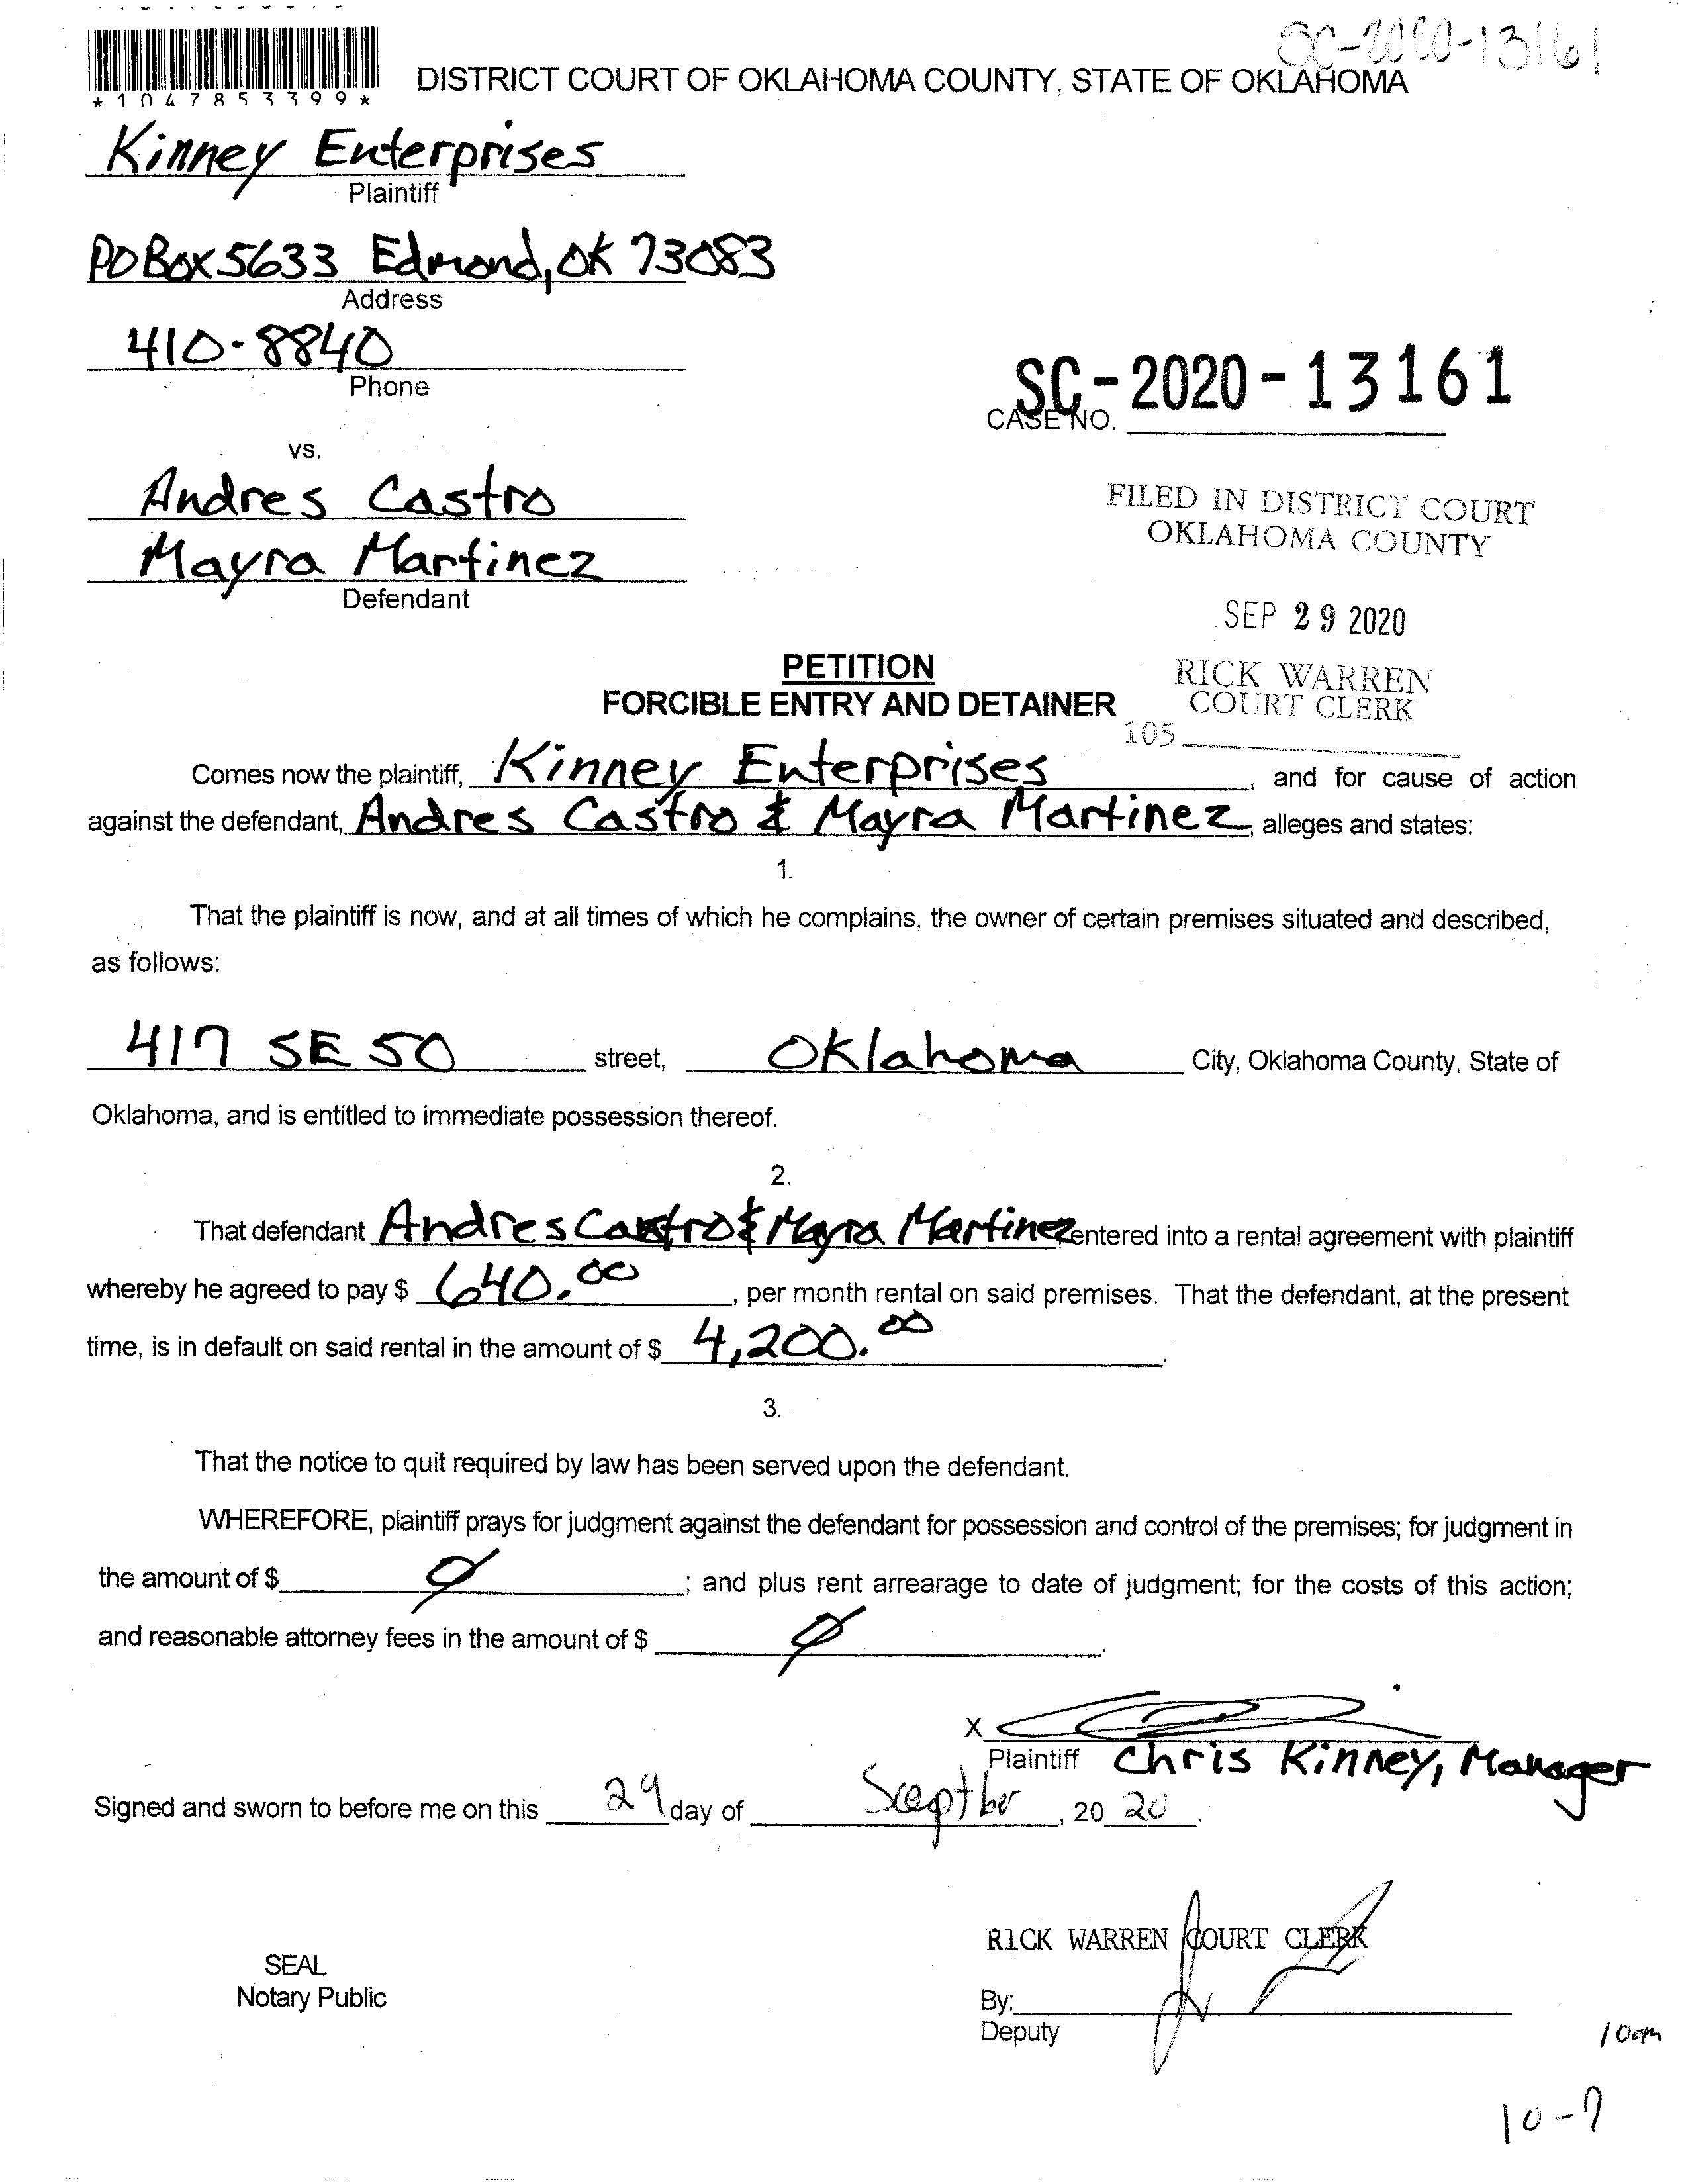 SC-2020-13161
*1047853399*
DISTRICT COURT OF OKLAHOMA COUNTY, STATE OF OKLAHOMA
Kinney Enterprises
Plaintiff
PO Box 5633 Edmond, OK 73083
Address
410-8840
Phone
SC-2020-13161
CASE NO.
vs.
Andres Castro
Mayra Martinez
Defendant
FILED IN DISTRICT COURT
OKLAHOMA COUNTY
SEP 29 2020
RICK WARREN
COURT CLERK
105
PETITION
FORCIBLE ENTRY AND DETAINER
Comes now the plaintiff, Kinney Enterprises, and for cause of action
against the defendant, Andres Castro & Mayra Martinez, alleges and states:
1.
That the plaintiff is now, and at all times of which he complains, the owner of certain premises situated and described,
as follows:
417 SE 50 street, Oklahoma City, Oklahoma County, State of
Oklahoma, and is entitled to immediate possession thereof.
2.
That defendant Andres Castro & Mayra Martinez entered into a rental agreement with plaintiff
whereby he agreed to pay $ 640.00, per month rental on said premises. That the defendant, at the present
time, is in default on said rental in the amount of $ 4,200.00.
3.
That the notice to quit required by law has been served upon the defendant.
WHEREFORE, plaintiff prays for judgment against the defendant for possession and control of the premises; for judgment in
the amount of $ 0; and plus rent arrearage to date of judgment; for the costs of this action;
and reasonable attorney fees in the amount of $ 0.
X
Plaintiff Chris Kinney, Manager
Signed and sworn to before me on this 29 day of Sceptber, 2020.
RICK WARREN COURT CLERK
SEAL
Notary Public
By:
Deputy
10am
10-7